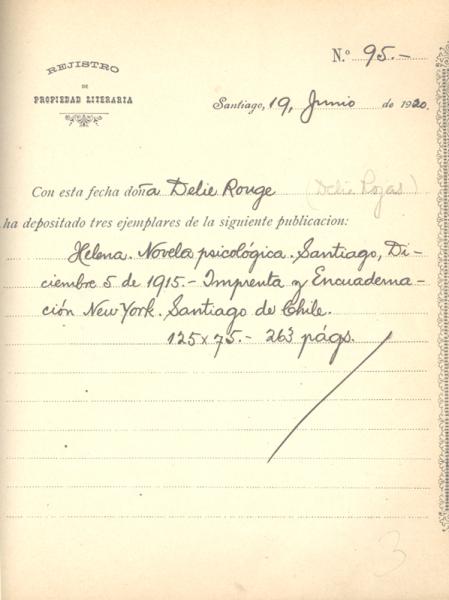 N.º 95.-
REJISTRO
DE
PROPIEDAD LITERARIA
Santiago, 19, Junio de 1920.
Con esta fecha doña Delie Rouge (Delie Rojas)
ha depositado tres ejemplares de la siguiente publicacion:
Helena. Novela psicológica. Santiago, Di-
ciembre 5 de 1915.- Imprenta y Encuaderna-
ción New York. Santiago de Chile.
125 x 75.- 263 págs.
3